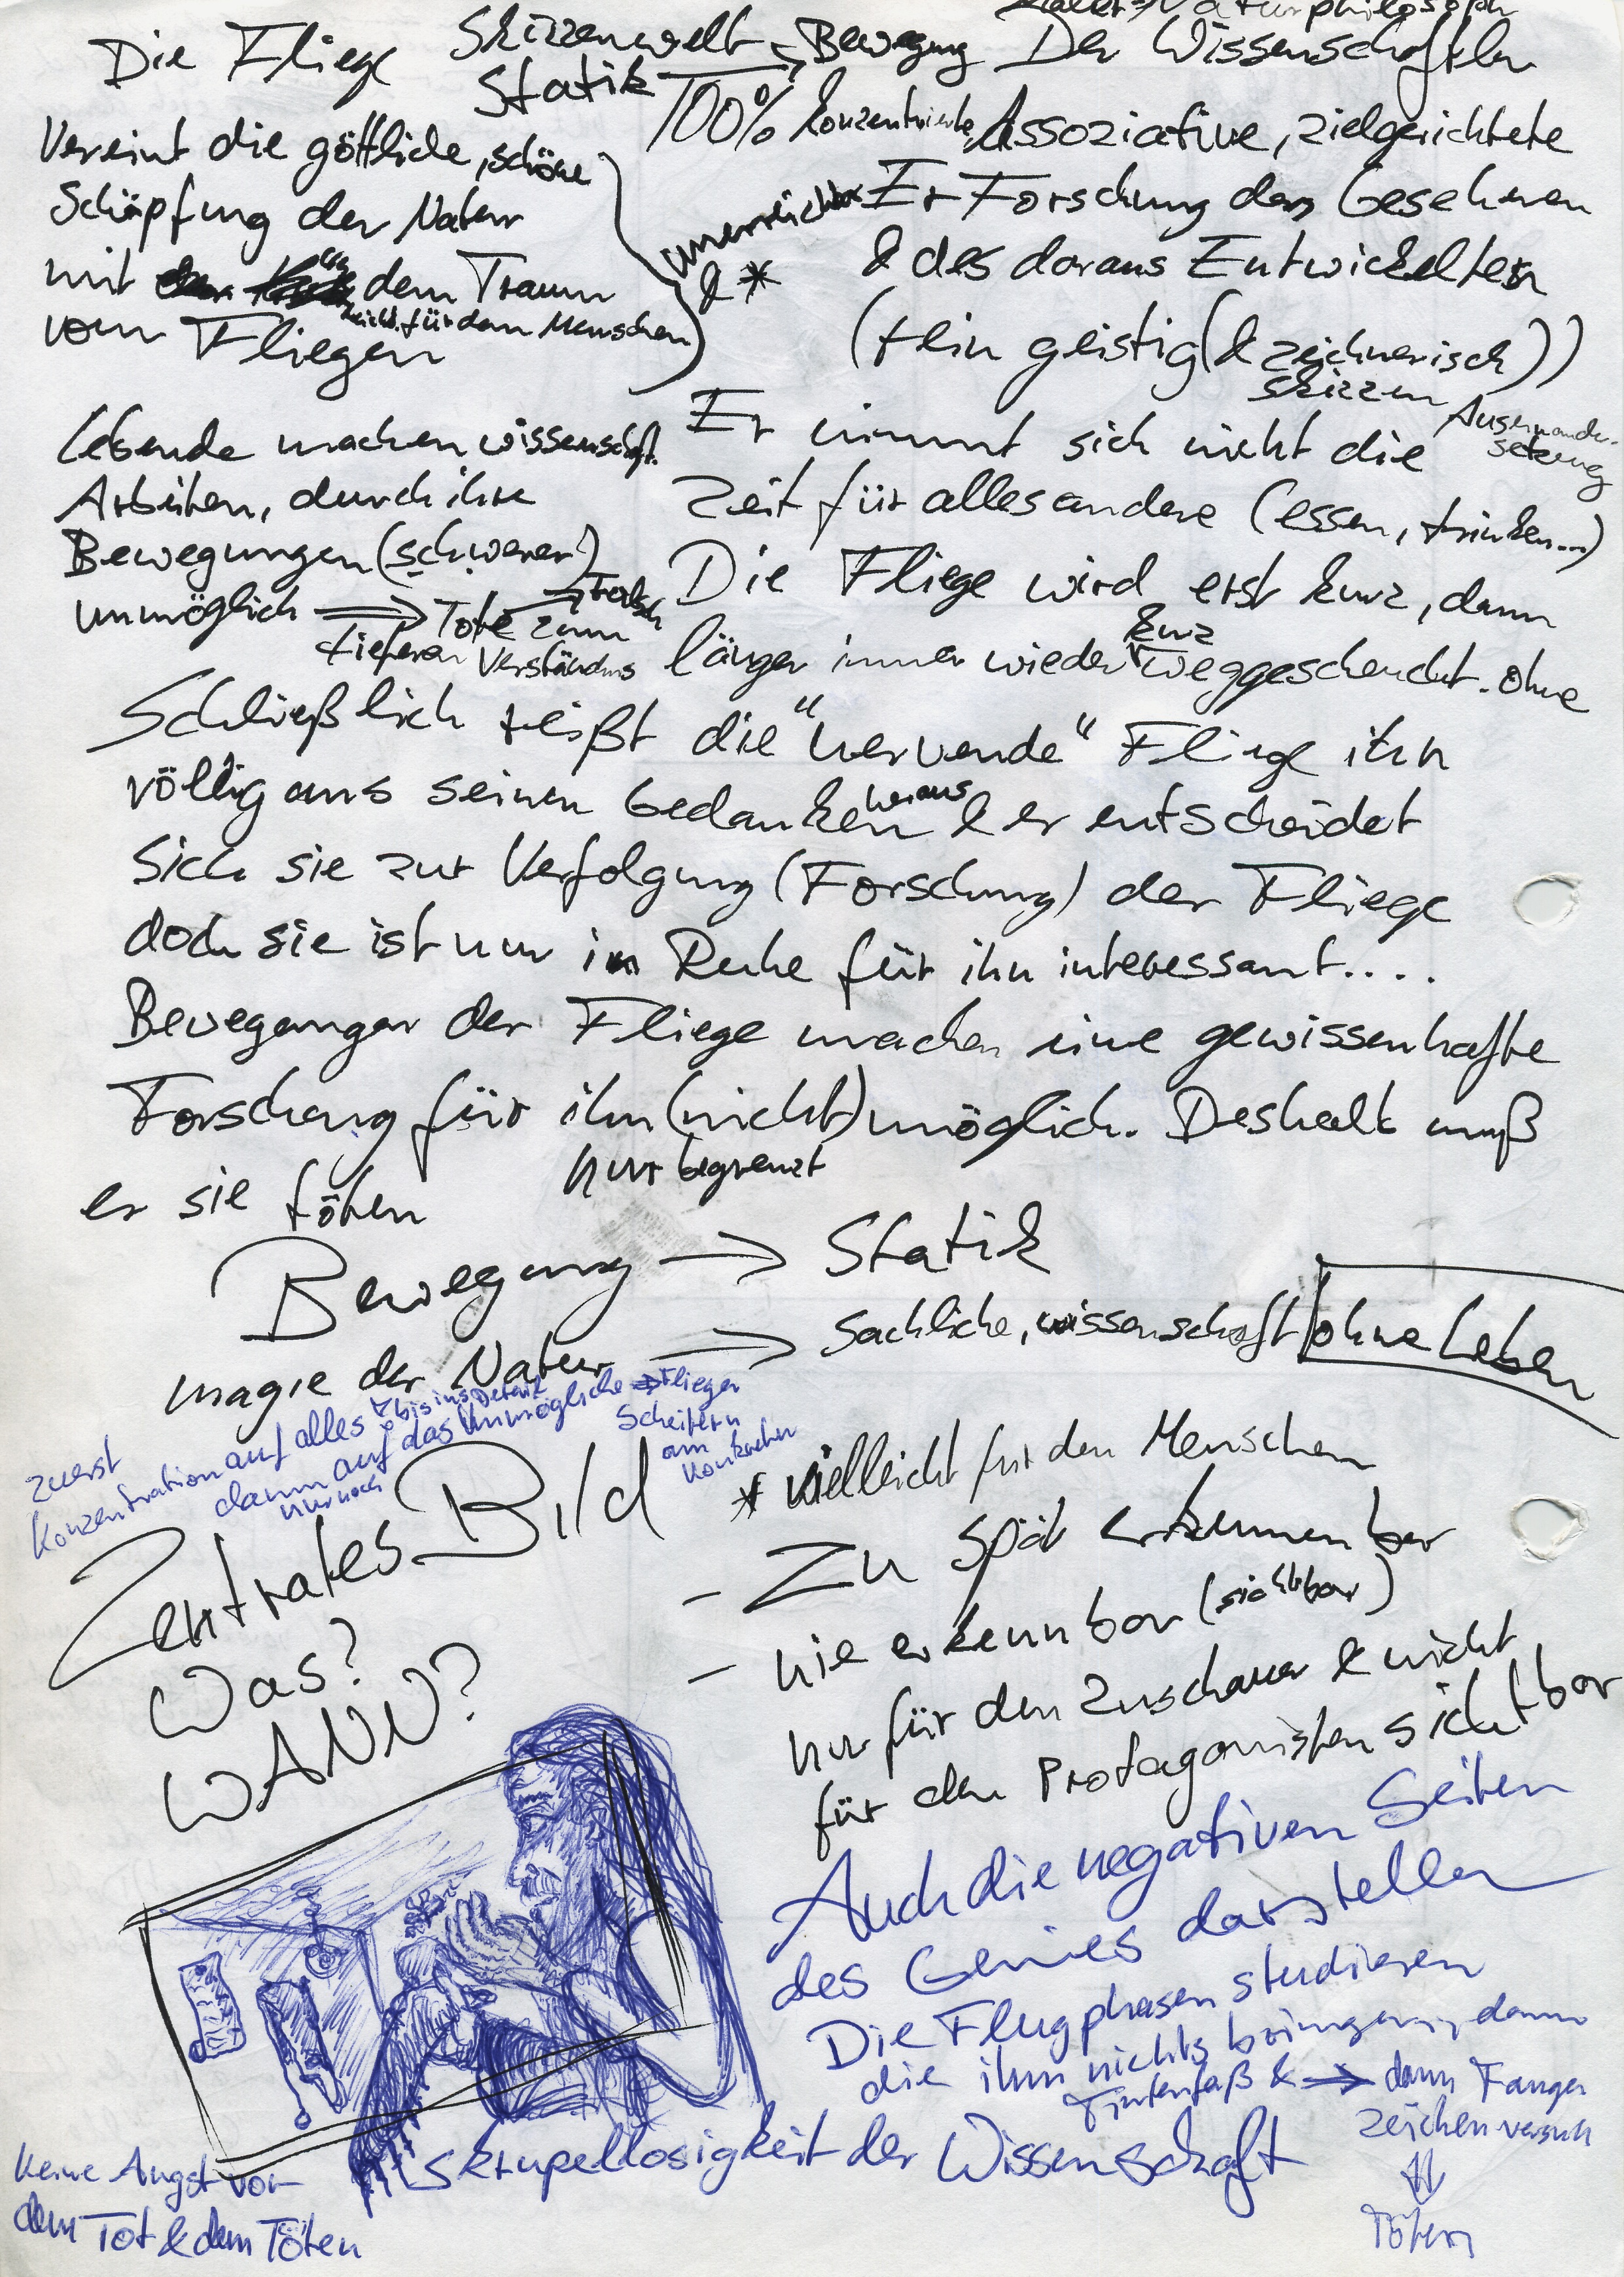 Naturphilosoph
Die Fliege
Skizzenwelt → Bewegung
Statik
Der Wissenschaftler
Vereint die göttliche, schöne
Schöpfung der Natur
mit dem Traum
vom Fliegen
für den Menschen
unerreichbar
& *
100% konzentrierte, Assoziative, zielgerichtete
Er Forschung des Gesehenen
& des daraus Entwickelten
(rein geistig (& zeichnerisch))
skizzen
Er nimmt sich nicht die
Auseinander-
setzung
Zeit für alles andere (essen, trinken...)
Lebende machen wissenschaft.
Arbeiten, durch ihre
Bewegungen (schwerer)
unmöglich ⇒ Tote zum
tieferen Verständnis
Die Fliege wird erst kurz, dann
länger immer wieder kurz weggescheucht. ohne
Schließlich reißt die "nervende" Fliege ihn
völlig aus seinen Gedanken heraus & er entscheidet
sich sie zur Verfolgung (Forschung) der Fliege
doch sie ist nur in Ruhe für ihn interessant....
Bewegungen der Fliege machen eine gewissenhafte
Forschung für ihn (nicht) möglich. Deshalb muß
nur begrenzt
er sie töten
Bewegung → Statik
magie der Natur → Sachliche, wissenschaft ohne Leben
zuerst
Konzentration auf alles bis ins Detail
dann auf das Unmögliche → Fliegen
nur noch
Scheitern
am
Zentrales Bild
Was?
WANN?
* vielleicht für den Menschen
- Zu spät erkennenbar
- nie erkennbar (sichtbar)
nur für den Zuschauer & nicht
für den Protagonisten sichtbar
Auch die negativen Seiten
des Genies darstellen
Die Flugphasen studieren
die ihm nichts bringen, dann
Tintenfaß & → dann Fangen
zeichenversuch
⇓
Töten
Skrupellosigkeit der Wissenschaft
Keine Angst vor
dem Tot & dem Töten